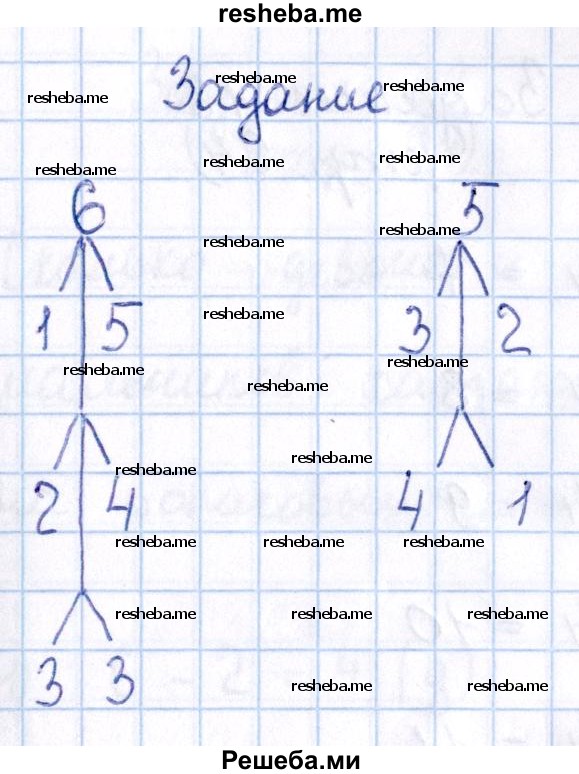 resheba.me
Задание
resheba.me
resheba.me
resheba.me
resheba.me
resheba.me
resheba.me
6 5
resheba.me
resheba.me
resheba.me
1 5 3 2
resheba.me
resheba.me
resheba.me
resheba.me
resheba.me
2 4 4 1
resheba.me
resheba.me
resheba.me
resheba.me
resheba.me
resheba.me
3 3
resheba.me
resheba.me
Решеба.ми